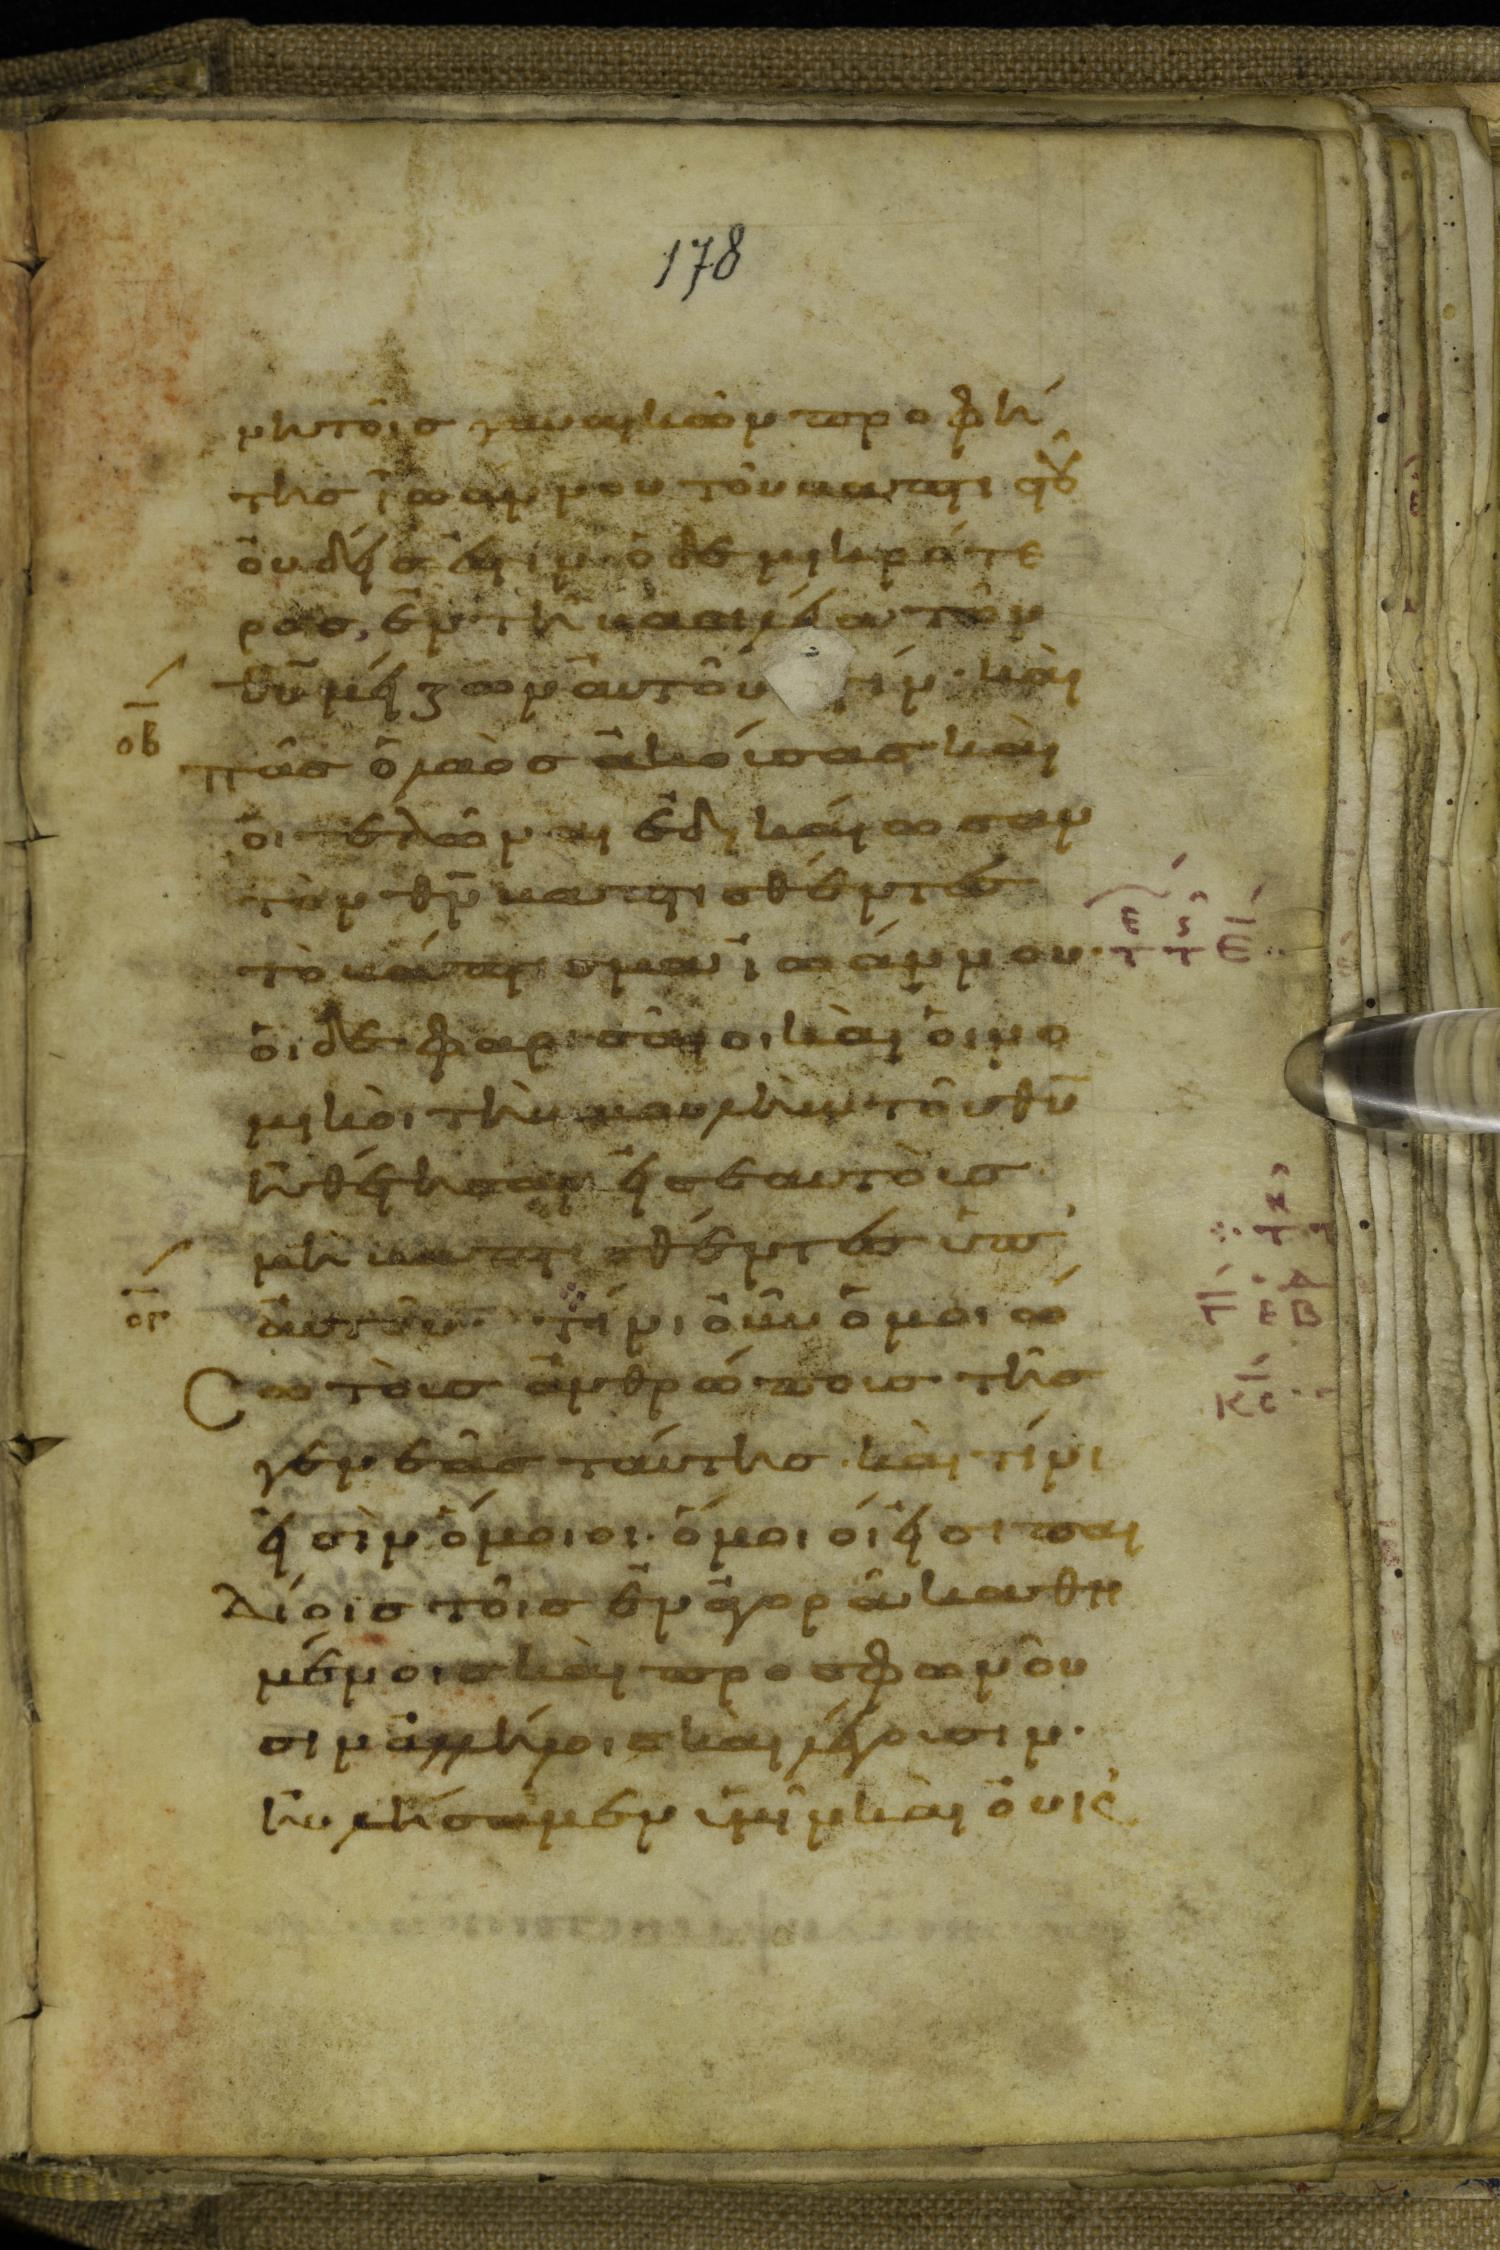 178
νητοῖς γυναικῶν προφή
της ἰωάννου τοῦ βαπτιστοῦ
οὐδείς ἐστιν· ὁ δὲ μικρότε
ρος, ἐν τῆ βασιλεία τοῦ
θ̅υ̅ μείζων αὐτοῦ τίν· καὶ
ο̅β̅
πᾶς ὁ λαὸς ἀκούσας καὶ
οἱ τελῶναι ἐδικαίωσαν
τὸν θ̅ν̅ βαπτισθέντες
τὸ βάπτισμα ἰωάννου·
οἱ δὲ φαρισαῖοι καὶ οἱ νο
μικοὶ τὴν βουλὴν τοῦ θ̅υ̅
ἠθέτησαν εἰς ἑαυτοὺς
μὴ βαπτισθέντες ὑπ'
αὐτοῦ· τίνι οὖν ὁμοιώ
ο̅γ̅
Cω τοὺς ἀνθρώπους τῆς
γενεᾶς ταύτης· καὶ τίνι
εἰσὶν ὅμοιοι· ὅμοιοί εἰσι παι
δίοις τοῖς ἐν ἀγορᾶ καθη
μένοις καὶ προσφωνοῦ
σιν ἀλλήλοις καὶ λέγουσιν·
ηὐλήσαμεν ὑμῖν καὶ οὐκ